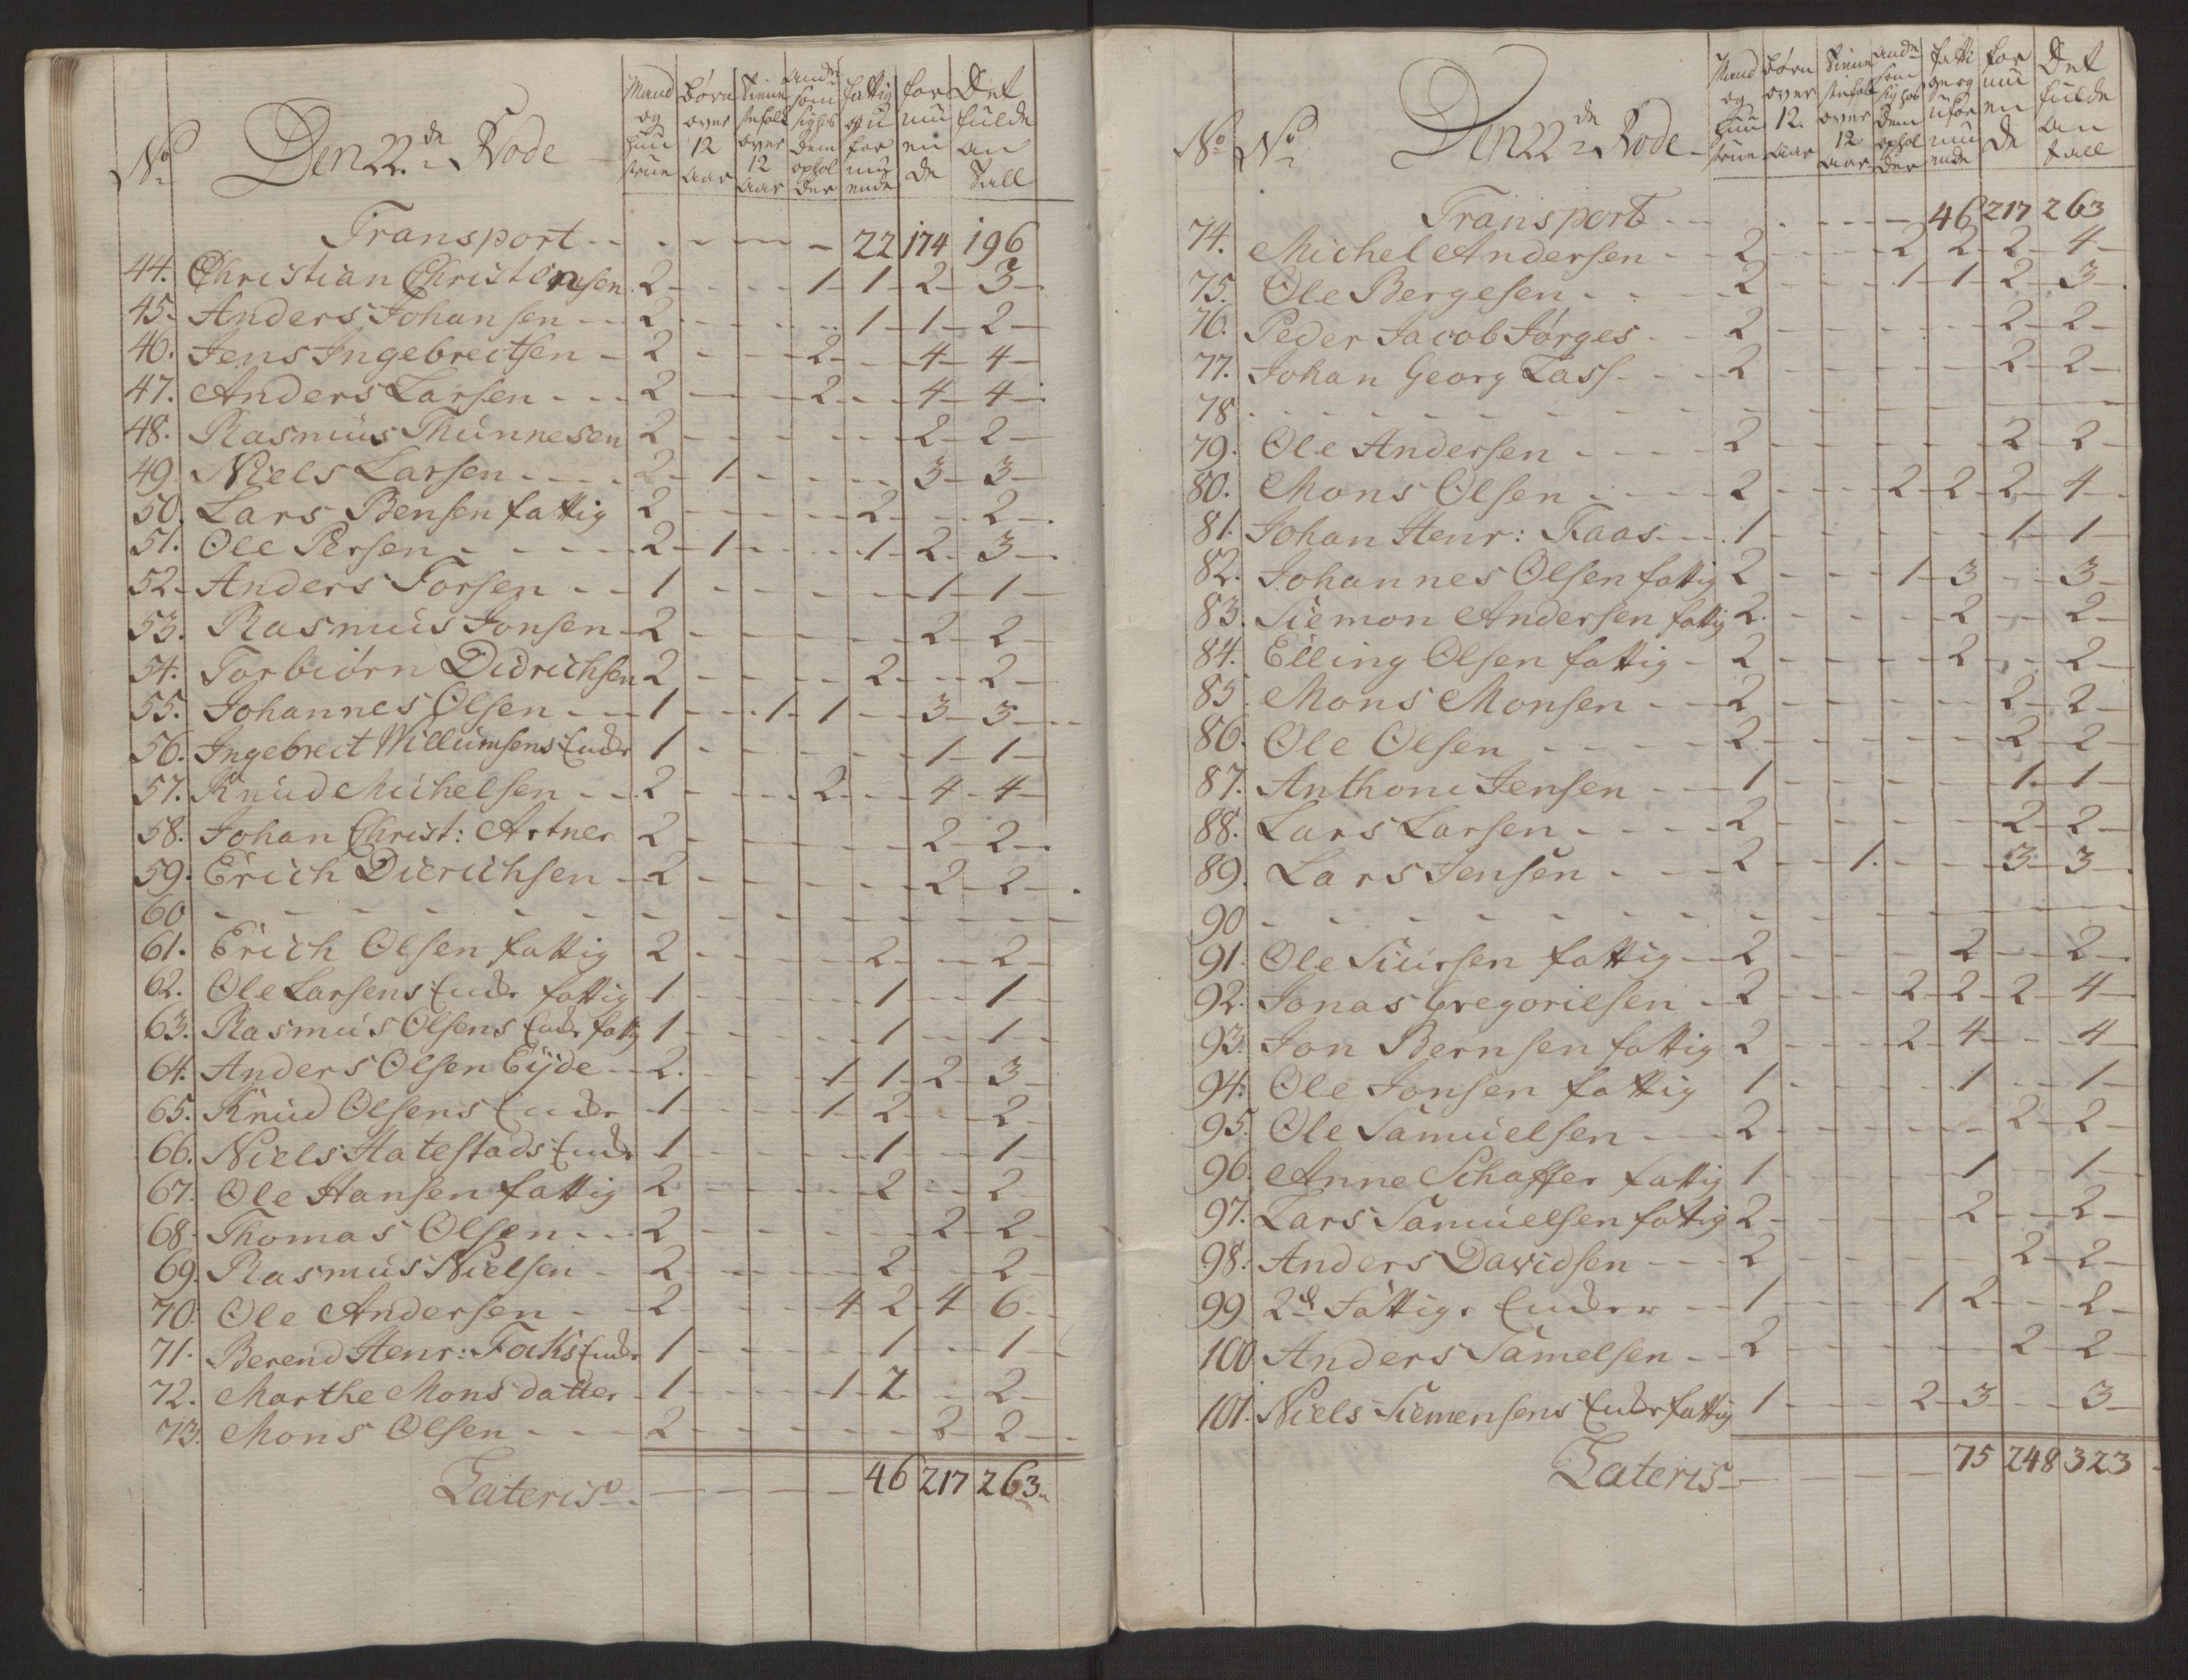 No Den 22de Rode Mand og Hustrue Børn over 12 Aar Tienestefolk over 12 Aar Andre som sig hos dem opholder fattig og uformuende formuende Det fulde Antall
Transport - - - - - - 22 174 196
44. Christian Christensen 2 - - - 1 - 1 - 2 - 3
45. Anders Johansen - - 2 - - - - 1 - 1 - 2
46. Jens Ingebreitsen - 2 - - - 2 - - 4 - 4
47. Anders Larsen - - - 2 - - - 2 - - 4 - 4
48. Rasmus Thunnesen 2 - - - - - 2 - 2
49. Niels Larsen - - - 2 - 1 - - - - 3 - 3
50. Lars Bensen fattig 2 - - - - 2 - - 2
51. Ole Persen - - - - 2 - 1 - - - 1 - 2 - 3
52. Anders Torsen - - 1 - - - - - 1 - 1
53. Rasmus Jonsen - 2 - - - - - 2 - 2
54. Torbiørn Didrichsen 2 - - - - 2 - - 2
55. Johannes Olsen - - - 1 - - 1 - 1 - - 3 - 3
56. Ingebreit Willumsens Encke 1 - - - - - 1 - 1
57. Knud Michelsen - - - 2 - - - 2 - - 4 - 4
58. Johan Christ: Artner 2 - - - - - 2 - 2
59. Erich Dicrichsen - 2 - - - - - 2 - 2
60 - - - - - - - - - - -
61. Erich Olsen fattig 2 - - - - 2 - - 2
62. Ole Larsens Encke fattig 1 - - - - 1 - - 1
63. Rasmus Olsens Encke fattig 1 - - - - 1 - - 1
64. Anders Olsen Eyde - - 2 - - - 1 - 1 - 2 - 3
65. Knud Olsens Encke - 1 - - - 1 - 2 - - 2
66. Niels Hatestads Encke 1 - - - - 1 - - 1
67. Ole Hansen fattig 2 - - - - 2 - - 2
68. Thomas Olsen - - - 2 - - - - - 2 - 2
69. Rasmus Nielsen - 2 - - - - 2 - - 2
70. Ole Andersen - - 2 - - - 4 - 2 - 4 - 6
71. Berend Henr: Focks Encke 1 - - - - 1 - - 1
72. Marthe Mons datter - 1 - - - 1 - 2 - - 2
73. Mons Olsen - - - - 2 - - - - - 2 - 2
Lateris - - - - - 46 217 263
No No Den 22de Rode Mand og Hustrue Børn over 12 Aar Tienestefolk over 12 Aar Andre som sig hos dem opholder fattige og uformuende formuende Det fulde Antall
Transport - - - - - - 46 217 263
74. Michel Andersen - - 2 - - - 2 - 2 - 2 - 4
75. Ole Bergesen - - - - 2 - - - 1 - 1 - 2 - 3
76. Peder Jacob Jørges - - 2 - - - - - 2 - 2
77. Johan Georg Lass - - - 2 - - - - - 2 - 2
78 - - - - - - - - - - -
79. Ole Andersen - - - - 2 - - - - - 2 - 2
80. Mons Olsen - - - - 2 - - - 2 - 2 - 2 - 4
81. Johan Henr: Faas - - - 1 - - - - - 1 - 1
82. Johannes Olsen fattig 2 - - - 1 - 3 - - 3
83. Siemon Andersen fattig 2 - - - - 2 - - 2
84. Elling Olsen fattig - 2 - - - - 2 - - 2
85. Mons Monsen - - - 2 - - - - - 2 - 2
86. Ole Olsen - - - - 2 - - - - - 2 - 2
87. Anthoni Jensen - - - 1 - - - - - 1 - 1
88. Lars Larsen - - - - 2 - - - - - 2 - 2
89. Lars Jensen - - - - 2 - - 1 - - - 3 - 3
90 - - - - - - - - - - -
91. Ole Siursen fattig - - 2 - - - - 2 - - 2
92. Jonas Gregoriisen - 2 - - - 2 - 2 - 2 - 4
93. Jon Bernsen fattig 2 - - - 2 - 4 - - 4
94. Ole Jonsen fattig 1 - - - - 1 - - 1
95. Ole Samuelsen - - - 2 - - - - - 2 - 2
96. Anne Schaffer fattig 1 - - - - 1 - - 1
97. Lars Samuelsen fattig 2 - - - - 2 - - 2
98. Anders Davidsen - - - 2 - - - - - 2 - 2
99 2de Fattige Encker - - 1 - - - 1 2 - - 2
100 Anders Samelsen - - 2 - - - - - 2 - 2
101. Niels Siemensens Encke fattig 1 - - - 2 - 3 - - 3
Lateris - - - - - 75 248 323